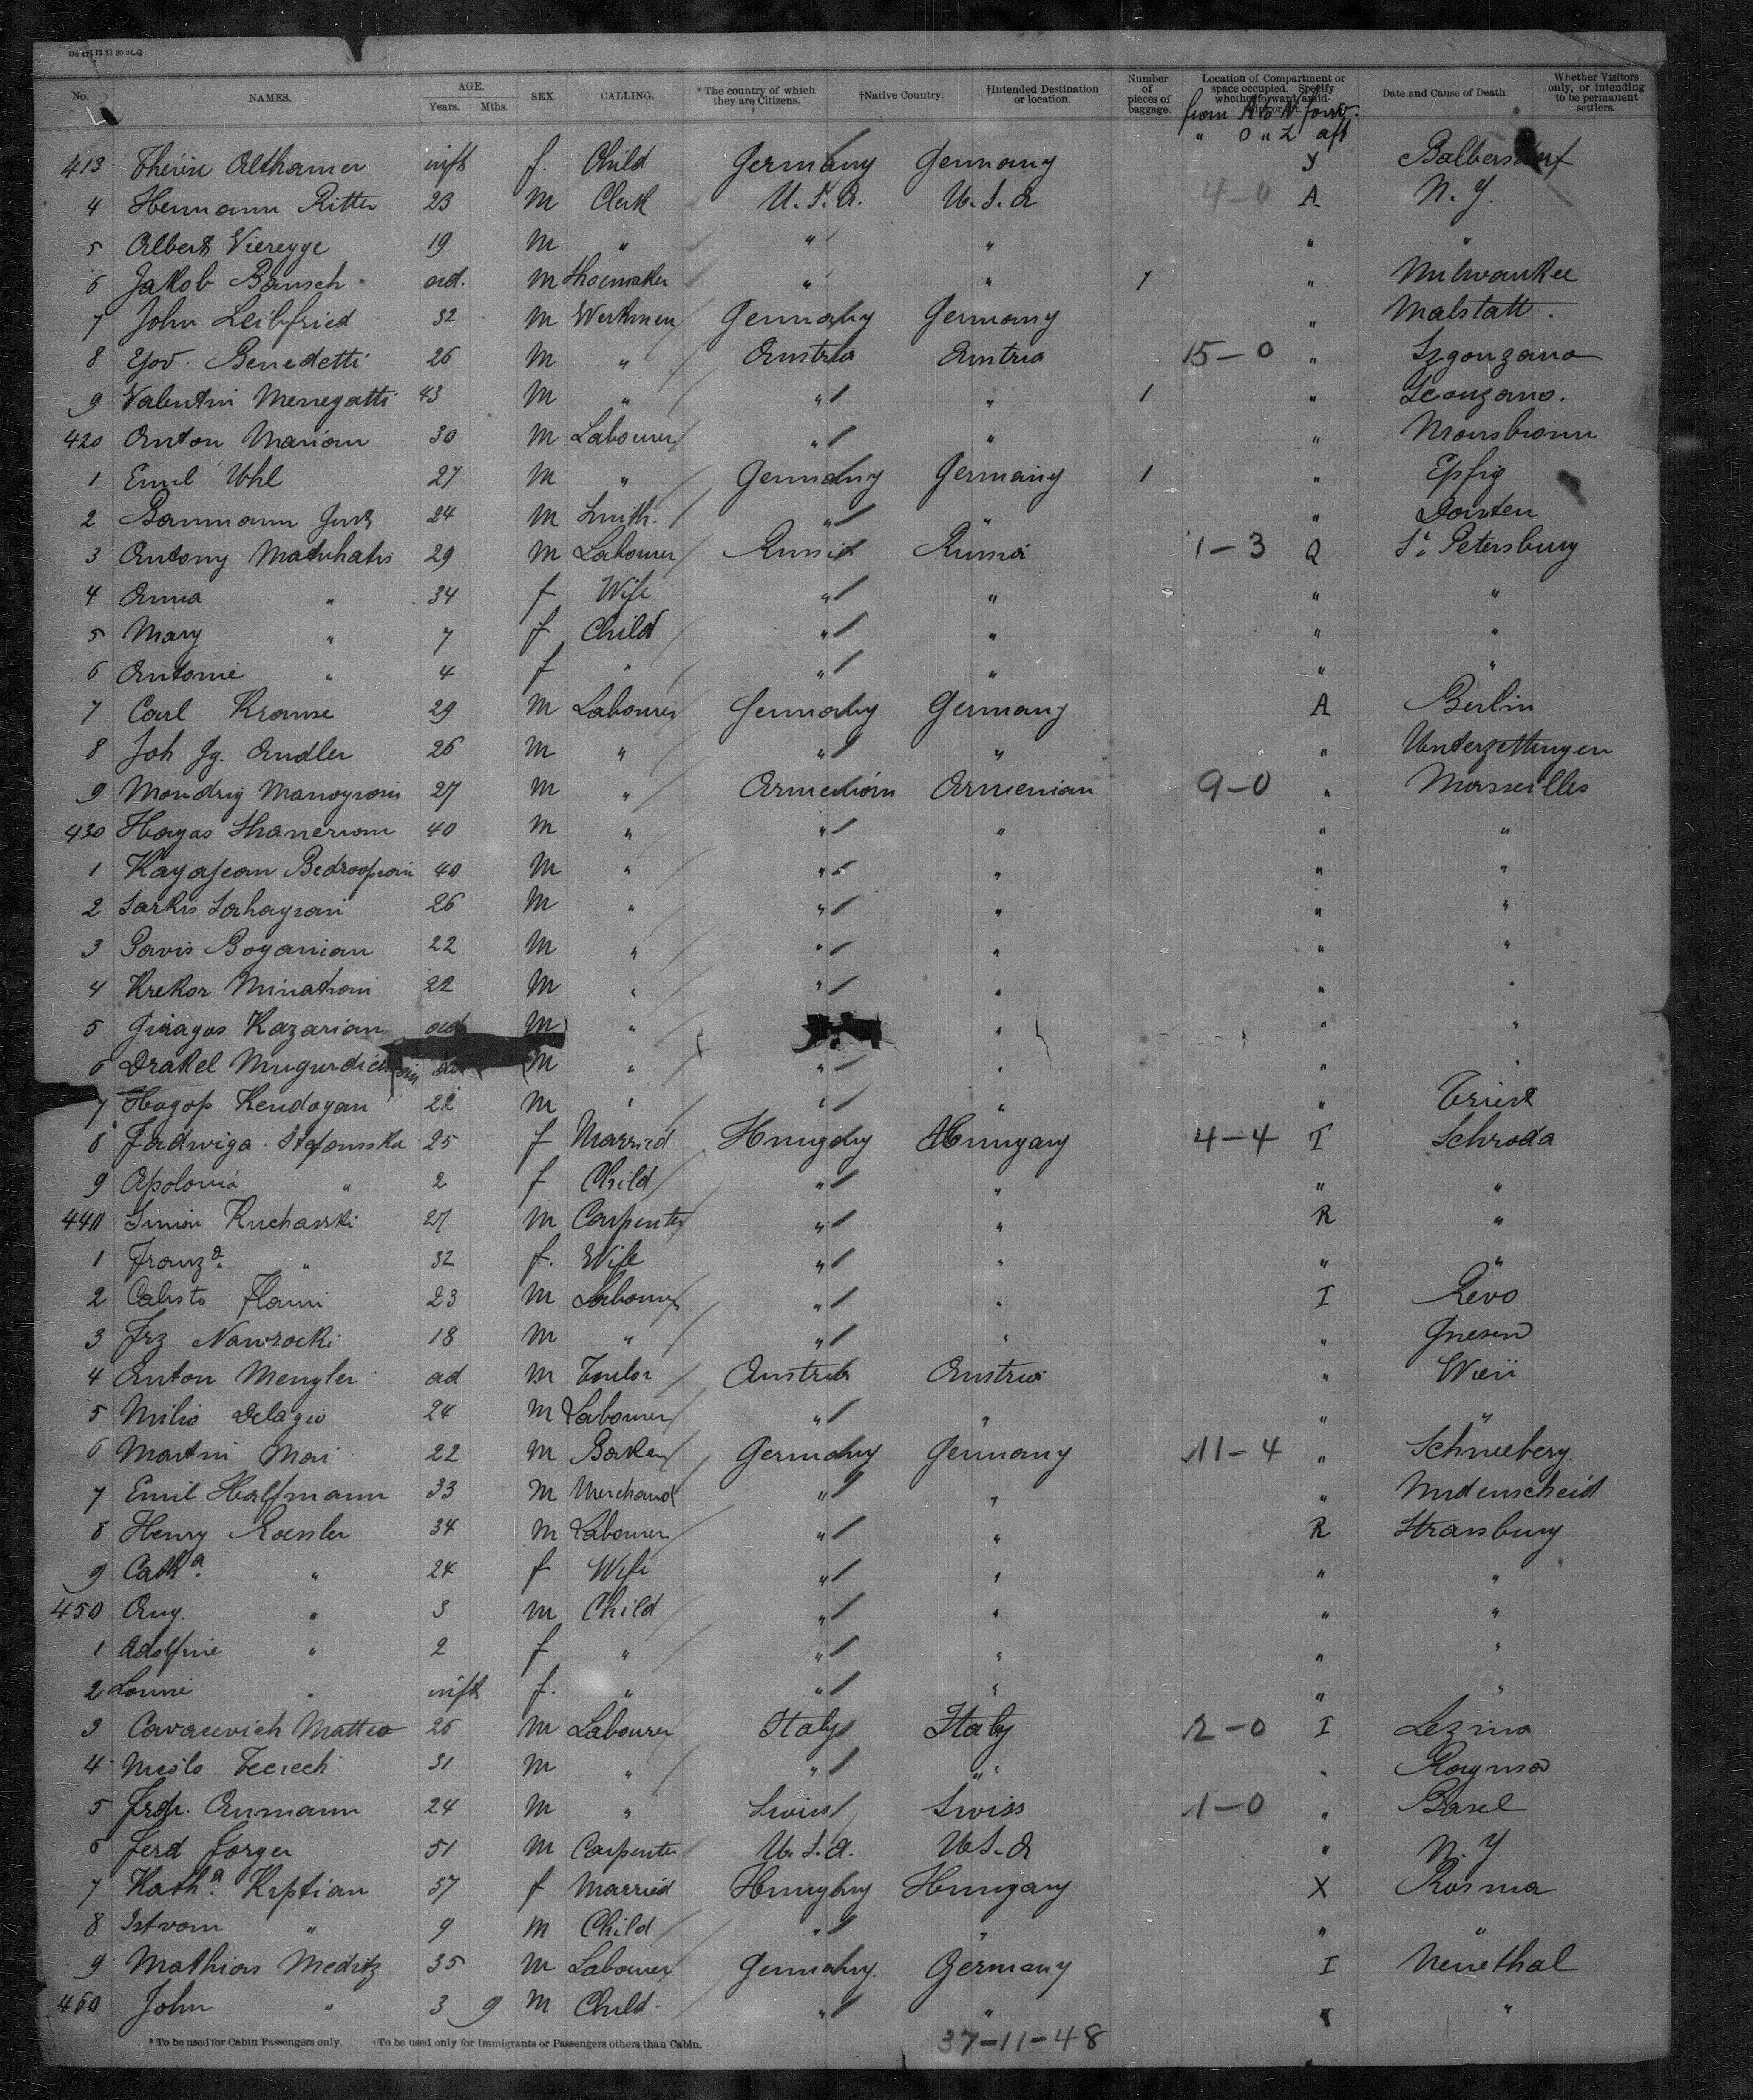 No. NAMES. AGE. Years. Mths. SEX. CALLING. *The country of which they are Citizens. †Native Country †Intended Destination or location. Number of pieces of baggage. Location of Compartment or space occupied. Specify whether forward, amid- Date and Cause of Death Whether Visitors only, or intending to be permanent settlers.
from A to N forw.
" O " Z aft
413 Althamer inft f. Child Germany Germany Y
4 Hermann Ritter 23 M Clerk U.S.A. U.S.A 4-0 A N.Y.
5 Albert Vieregge 19 M " " " " "
6 Jakob Bänsch ad. M Shoemaker " " 1 " Milwaukee
7 John Leibfried 32 M Workmen Germany Germany " Malstatt.
8 Giov. Benedetti 26 M " Austria Austria 15-0 "
9 Valentin Menegatti 43 M " " " 1 "
420 Anton Marion 30 M Labourer " " "
1 Emil Uhl 27 M " Germany Germany 1 " Epfig
2 Baumann 24 M Smith. " " " Dorsten
3 Antony 29 M Labourer Russia Russia 1-3 Q St. Petersburg
4 Anna " 34 f Wife " " " "
5 Mary " 7 f Child " " " "
6 Antonie " 4 f " " " " "
7 Carl Krause 29 M Labourer Germany Germany A Berlin
8 Joh Gg. Endler 26 M " " " "
9 27 M " Armenian Armenian 9-0 " Marseilles
430 40 M " " " " "
1 40 M " " " " "
2 Sarkis 26 M " " " " "
3 Boyanian 22 M " " " " "
4 Krekor 22 M " " " " "
5 Giragos Kazarian ad M " " " "
6 Drakel ad M " " " " "
7 Hagop Kendoyan 22 M " " " " Triest
8 Jadwiga 25 f Married Hungary Hungary 4-4 T Schroda
9 Apolonia " 2 f Child " " " "
440 Kucharski 27 M Carpenter " " R "
1 Franza. " 32 f. Wife " " " "
2 Calisto Flaim 23 M Labourer " " I Revo
3 Frz Nawrocki 18 M " " " " Gnesen
4 Anton Mengler ad M Tailor Austria Austria " Wien
5 Milio Delagio 24 M Labourer " " " "
6 Martin Mai 22 M Baker Germany Germany 11-4 " Schneeberg.
7 Emil Halfmann 33 M Merchant " " "
8 Henry Roessler 34 M Labourer " " R Strassburg
9 Catha. " 24 f Wife " " " "
450 Aug. " 3 M Child " " " "
1 Adolfine " 2 f " " " " "
2 Louise " inft f. " " " " "
3 Cavacevich Matteo 26 M Labourer Italy Italy 2-0 I Lezina
4 31 M " " " "
5 Frdr. Aumann 24 M " Swiss Swiss 1-0 " Basel
6 Ferd Jorger 51 M Carpenter U.S.A. U.S.A " N.Y.
7 Katha. 37 f Married Hungary Hungary X
8 Istvan " 9 M Child " " " "
9 Mathias Meditz 35 M Labourer Germany. Germany I Nenethal
460 John " 3 9 M Child. " " " "
*To be used for Cabin Passengers only. †To be used only for Immigrants or Passengers others than Cabin.
37-11-48